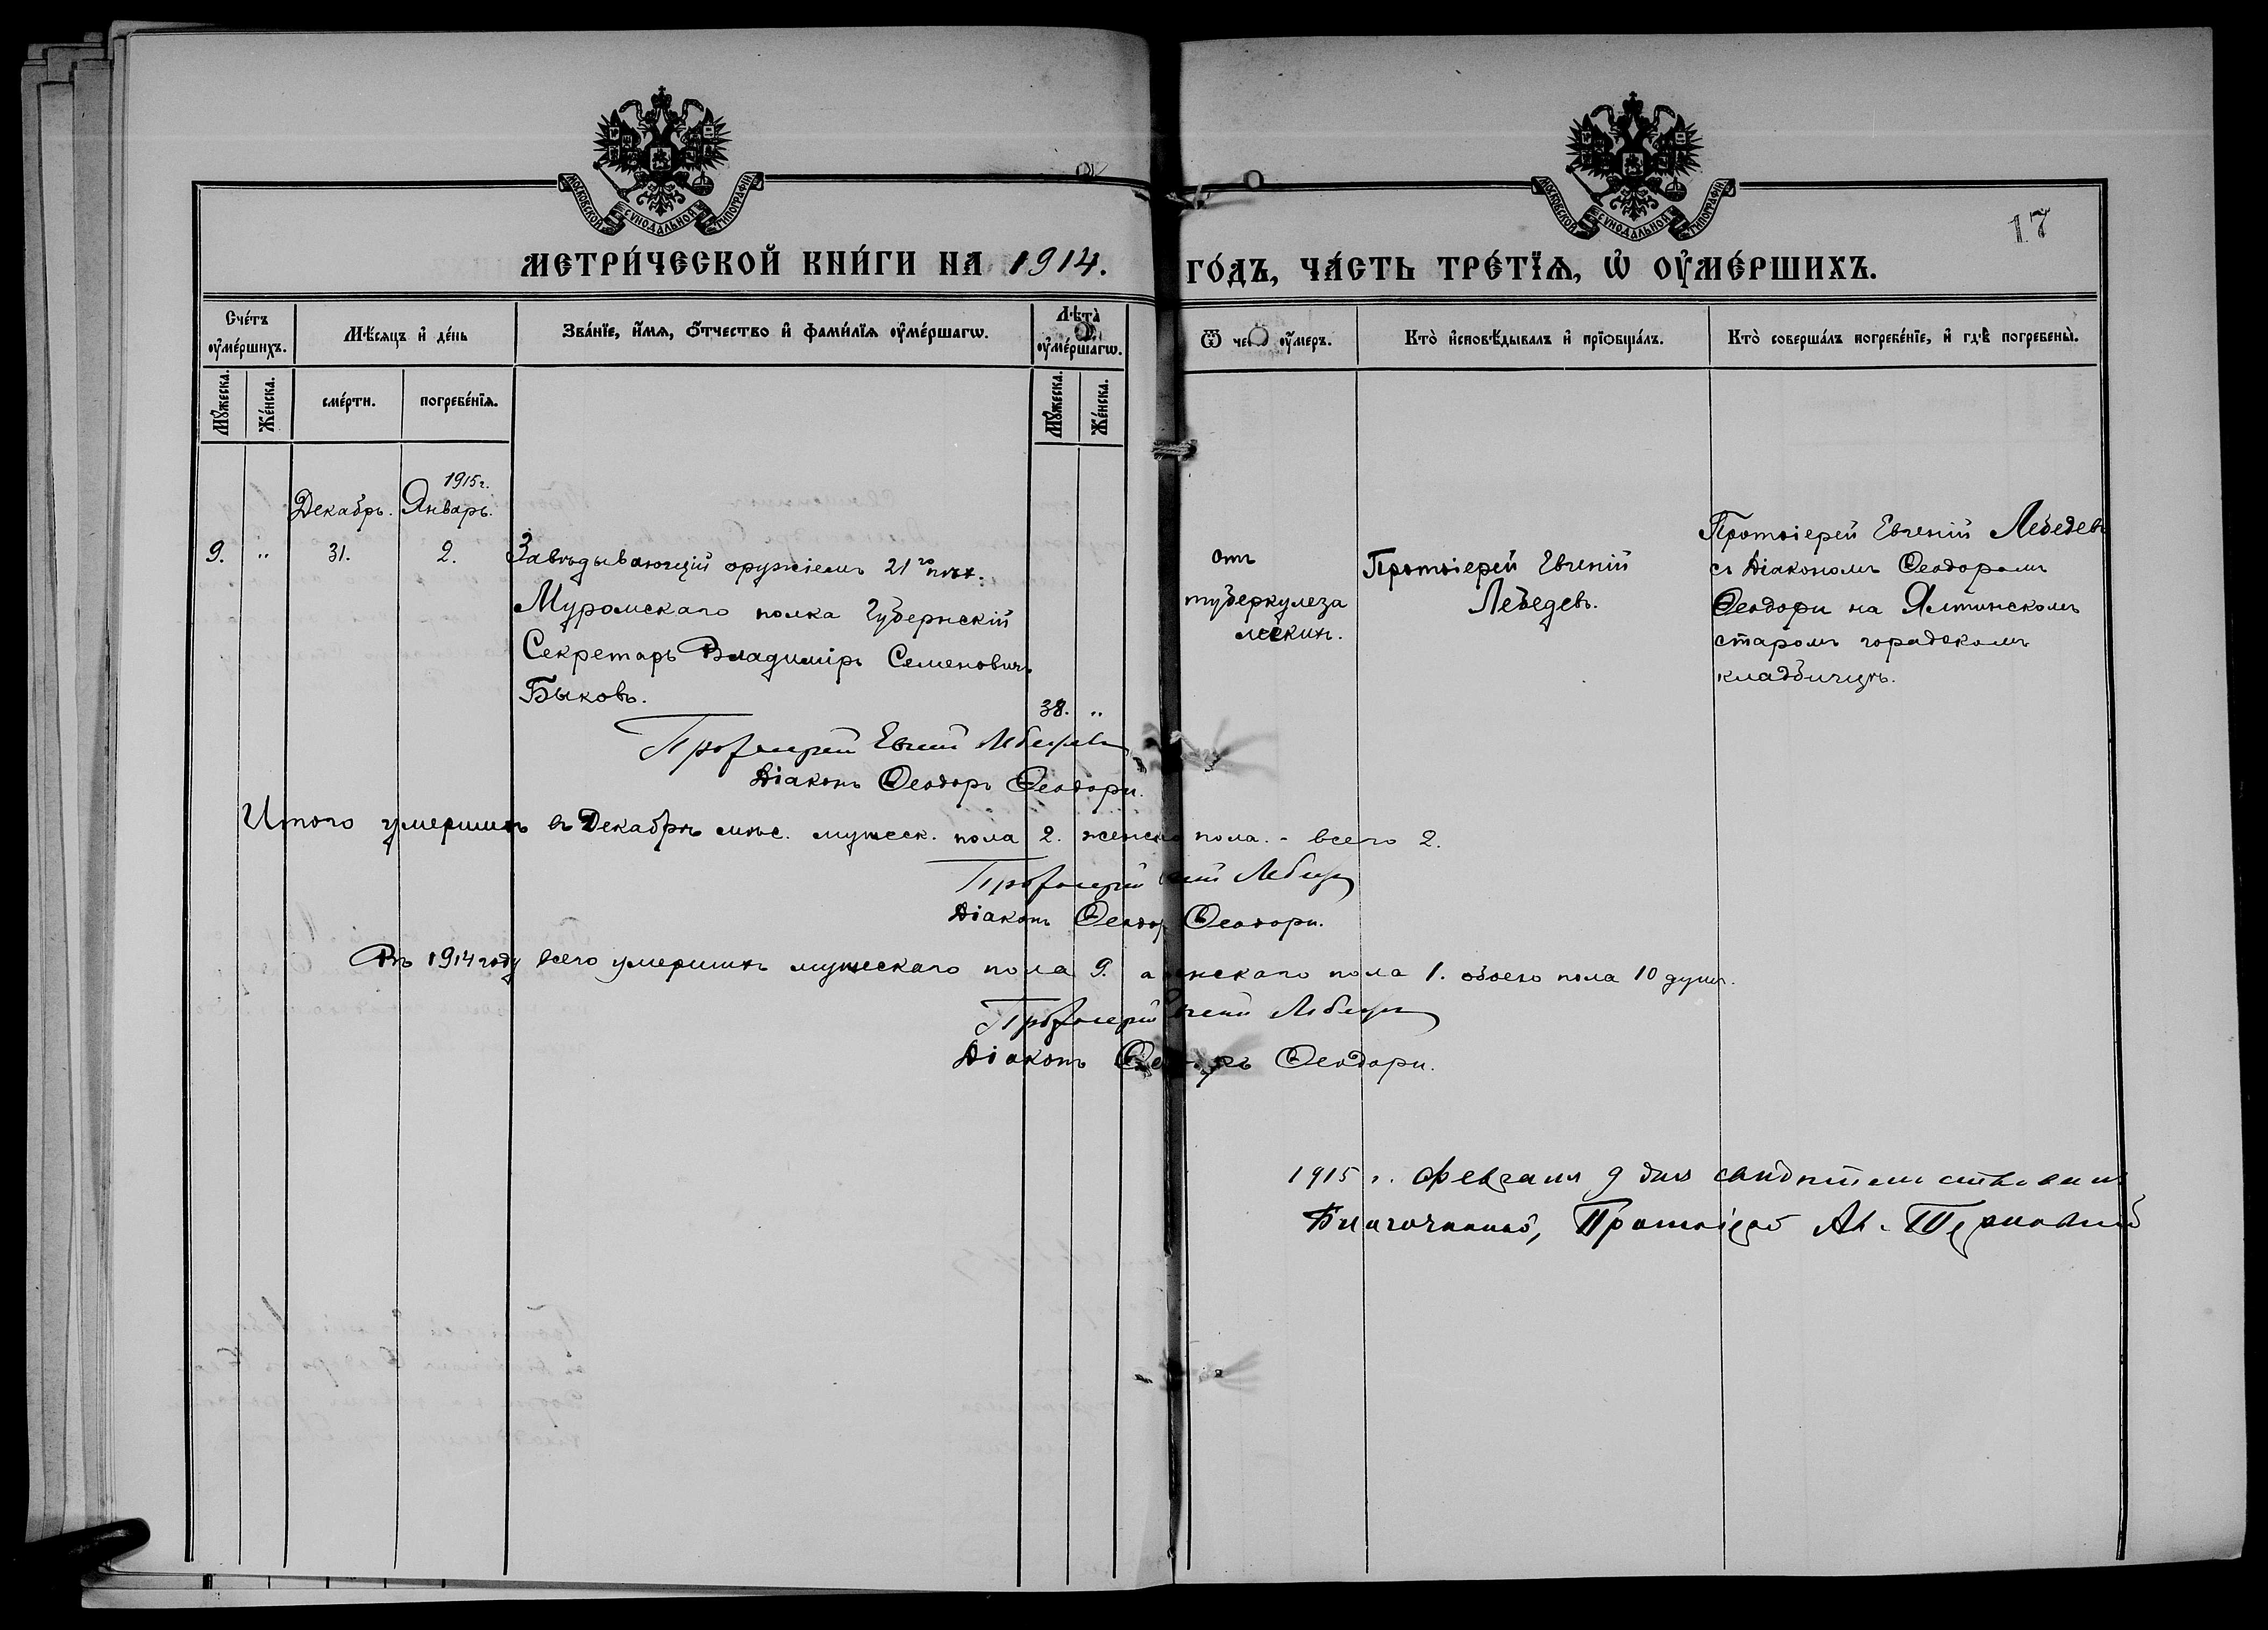 МОСКОВСКОЙ СУНОДАЛЬНОЙ ТИПОГРАФІИ
МОСКОВСКОЙ СУНОДАЛЬНОЙ ТИПОГРАФІИ
17
МЕТРИ́ЧЕСКОЙ КНИ́ГИ НА 1914. ГО́ДЪ, ЧА́СТЬ ТРЕ́ТЇѦ, Ѡ҆ ОУ҆МЕ́РШИХЪ.
Сче́тъ оу҆ме́ршихъ.
Мѣ́сяцъ и҆ де́нь
Зва́нїе, и҆́мѧ, ѻ҆́тчество и҆ фами́лїѧ оу҆ме́ршагѡ.
Лѣта̀ оу҆ме́ршагѡ.
Ѿ чегѡ̀ оу҆́меръ.
Кто̀ и҆сповѣ́дывалъ и҆ прїѡбща́лъ.
Кто̀ соверша́лъ погребе́нїе, и҆ гдѣ̀ погребены̀.
Мꙋ́жеска.
Же́нска.
сме́рти.
погребе́нїѧ.
Мꙋ́жеска.
Же́нска.
1915 г.
Декабрь. Январь.
9. „ 31. 2.
Завѣдывающій оружіемъ 21го пѣх.
Муромскаго полка Губернскій
Секретарь Владиміръ Семеновичъ
Быковъ.
38. „
отъ
туберкулеза
легкихъ.
Протоіерей Евгеній
Лебедевъ.
Протоіерей Евгеній Лебедевъ
съ Діакономъ Ѳеодоромъ
Ѳеодори на Ялтинскомъ
старомъ городскомъ
кладбищѣ.
Протоіерей Евгеній Лебедевъ
Діаконъ Ѳеодоръ Ѳеодори.
Итого умершихъ въ Декабрѣ мѣс. мужеск. пола 2. женска пола. - всего 2.
Протоіерей Евгеній Лебедевъ
Діаконъ Ѳеодоръ Ѳеодори.
Въ 1914 году всего умершихъ мужескаго пола 9. а женскаго пола 1. обоего пола 10 душъ.
Протоіерей Евгеній Лебедевъ
Діаконъ Ѳеодоръ Ѳеодори.
1915 г. Февраля 9 дня свидѣтельствовалъ
Благочинный, Протоіерей Ал. Терновскій